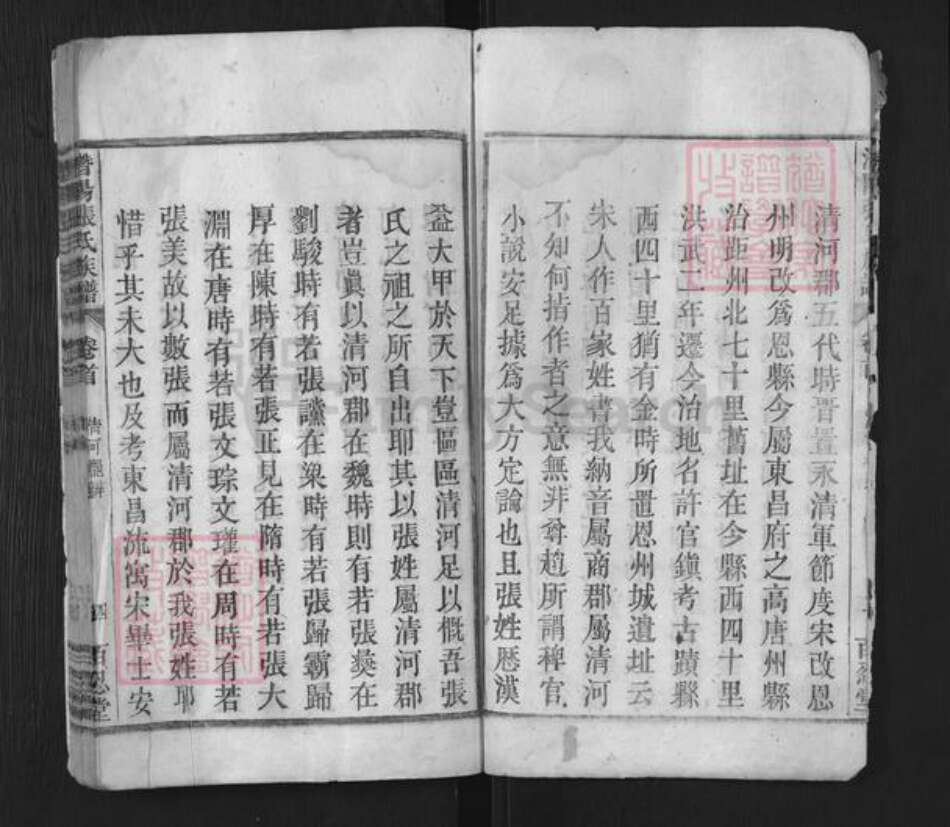 清河郡五代時晋置永清軍節度宋改恩
州明改爲恩縣今屬東昌府之高唐州縣
治距州北七十里舊址在今縣西四十里
洪武二年遷今治地名許官鎭考古蹟縣
西四十里猶有金時所置恩州城遺址云
朱人作百家姓書我納音屬商郡屬清河
不知何指作者之意無非尊趙所謂稗官
小說安足據爲大方定論也且張姓歷漢
益大甲於天下豈區區清河足以慨吾張
氏之祖之所自出耶其以張姓屬清河郡
者豈眞以清河郡在魏時則有若張彝在
劉駿時有若張讜在梁時有若張歸霸歸
厚在陳時有若張正見在隋時有若張大
淵在唐時有若張文琮文瓘在周時有若
張美故以數張而屬清河郡於我張姓耶
惜乎其未大也及考東昌流寓宋畢士安
張氏族譜
卷首
四
百忍堂
FamilySearch